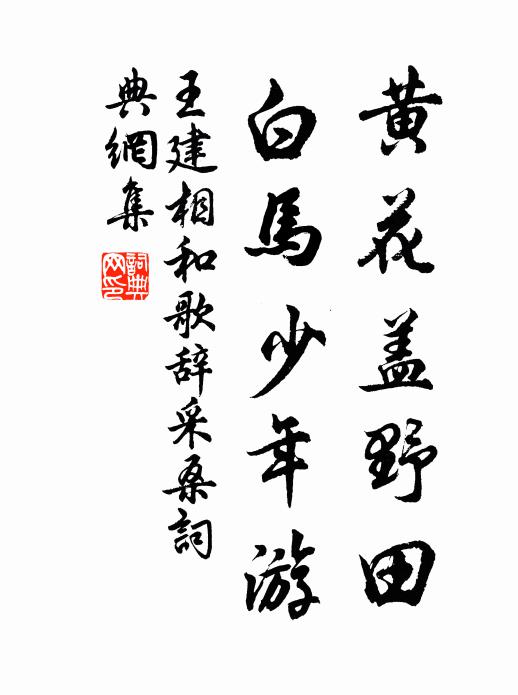 黄花盖野田
白馬少年游
王建相和歌辞采桑詞
典網集
詞典网印